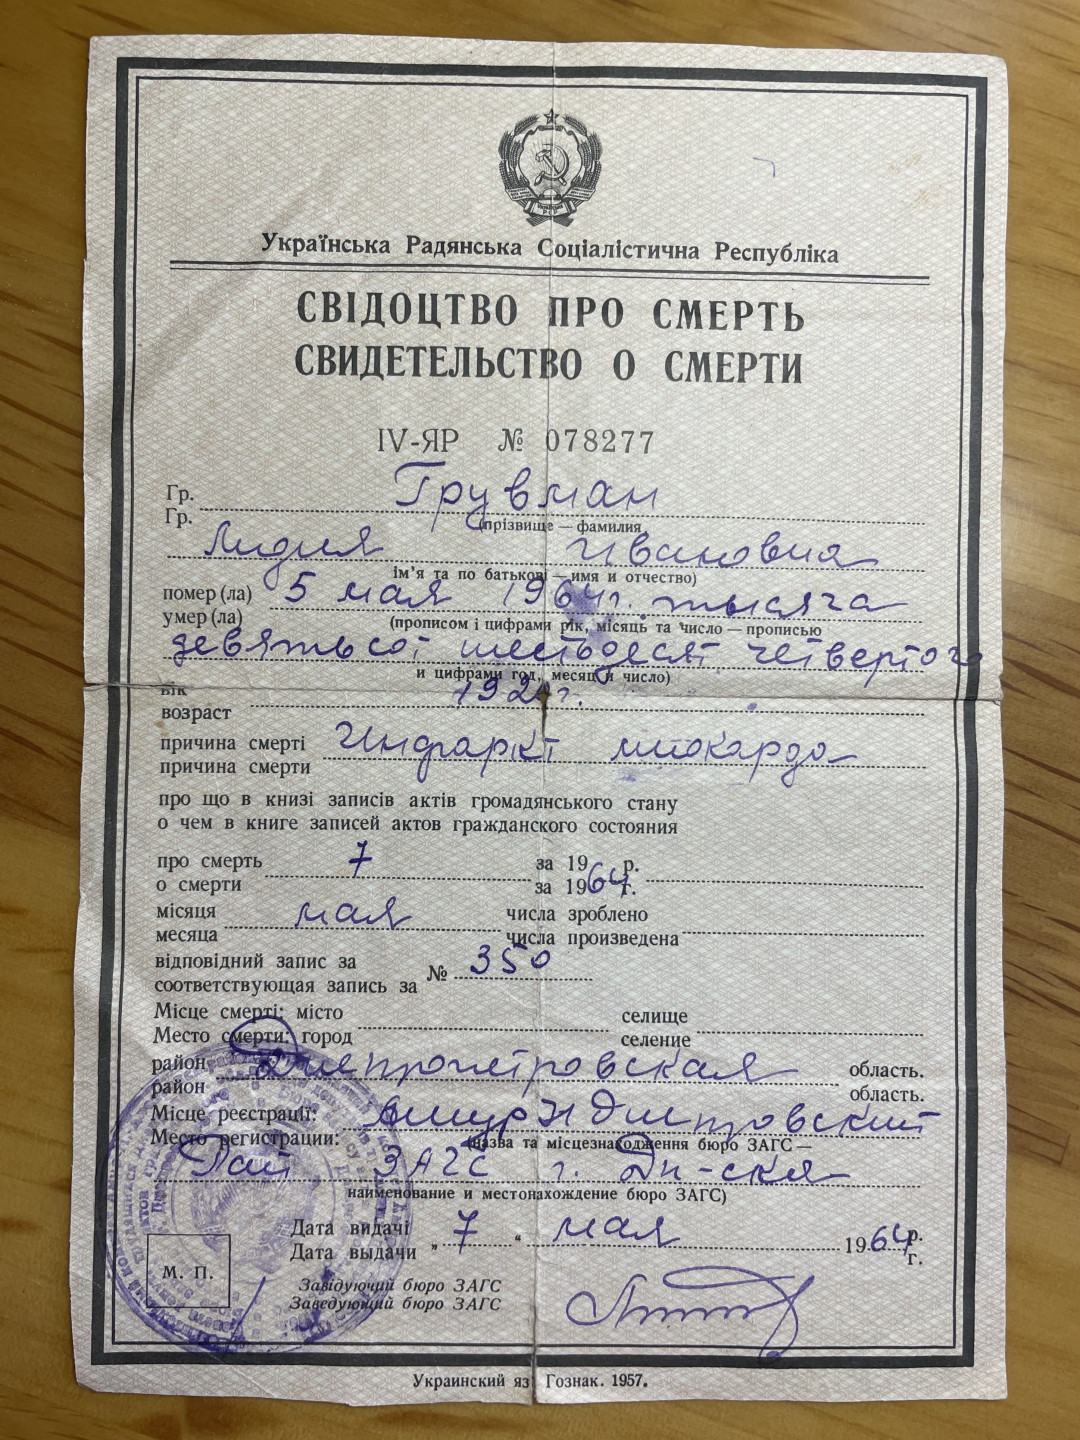 Українська Радянська Соціалістична Республіка
СВІДОЦТВО ПРО СМЕРТЬ
СВИДЕТЕЛЬСТВО О СМЕРТИ
IV-ЯР № 078277
Гр. Грувман
Гр.
(прізвище — фамилия
Лидия Ивановна
ім’я та по батькові — имя и отчество)
помер (ла) 5 мая 1964г. тысяча
умер (ла)
(прописом і цифрами рік, місяць та число — прописью
девятьсот шестьдесят четвертого
и цифрами год, месяц и число)
вік
возраст
причина смерті Инфаркт миокарда
причина смерти
про що в книзі записів актів громадянського стану
о чем в книге записей актов гражданского состояния
про смерть 7 за 1964 р.
о смерти за 19 г.
місяця мая числа зроблено
месяца числа произведена
відповідний запис за № 350
соответствующая запись за
Місце смерті: місто селище
Место смерти: город селение
район Днепропетровская область.
район область.
Місце реєстрації:
Место регистрации: (назва та місцезнаходження бюро ЗАГС —
ЗАГС г. Дн-ска
наименование и местонахождение бюро ЗАГС)
Дата видачі „ 7 “ мая 1964 р.
Дата выдачи г.
М. П.
Завідуючий бюро ЗАГС
Заведующий бюро ЗАГС
Украинский яз Гознак. 1957.